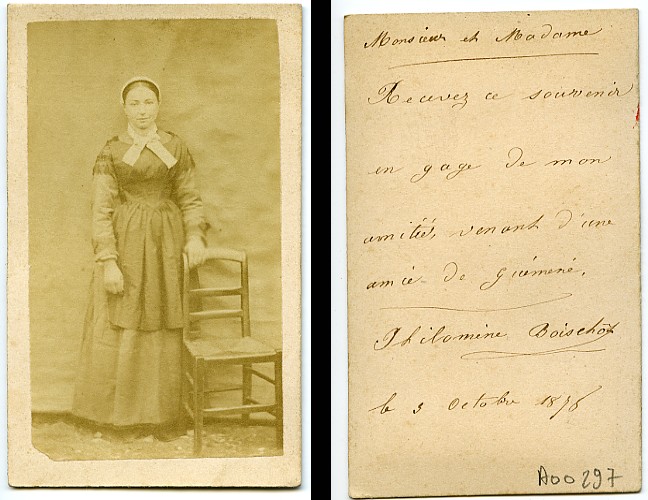 Monsieur et Madame
Recevez ce souvenir
en gage de mon
amitiés, venant d'une
amie de Guémené.
Philomène Boischot
le 3 Octobre 1876
A00297